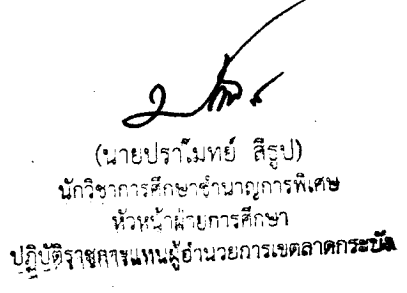 (นายปราโมทย์ สีรูป)
นักวิชาการศึกษาชำนาญการพิเศษ
หัวหน้าฝ่ายการศึกษา
ปฏิบัติราชการแทนผู้อำนวยการเขตลาดกระบัง